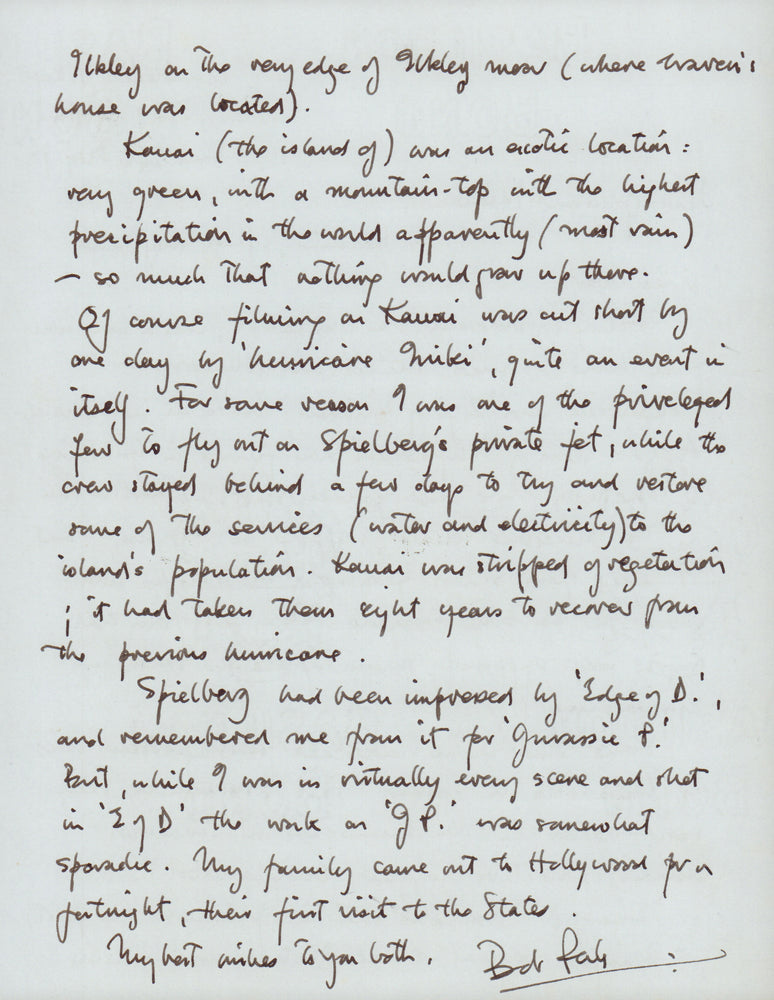 Ilkley on the very edge of Ilkley moor (where Craven's
house was located).
Kauai (the island of) was an exotic location:
very green, with a mountain-top with the highest
precipitation in the world apparently (most rain)
— so much that nothing would grow up there.
Of course filming on Kauai was cut short by
one day by 'hurricane Iniki', quite an event in
itself. For some reason I was one of the priveleged
few to fly out on Spielberg's private jet, while the
crew stayed behind a few days to try and restore
some of the services (water and electricity) to the
island's population. Kauai was stripped of vegetation
; it had taken them eight years to recover from
the previous hurricane.
Spielberg had been impressed by 'Edge of D.',
and remembered me from it for 'Jurassic P.'
But, while I was in virtually every scene and shot
in 'E of D' the work on 'J P.' was somewhat
sporadic. My family came out to Hollywood for a
fortnight, their first visit to the States.
My best wishes to you both. Bob Peck